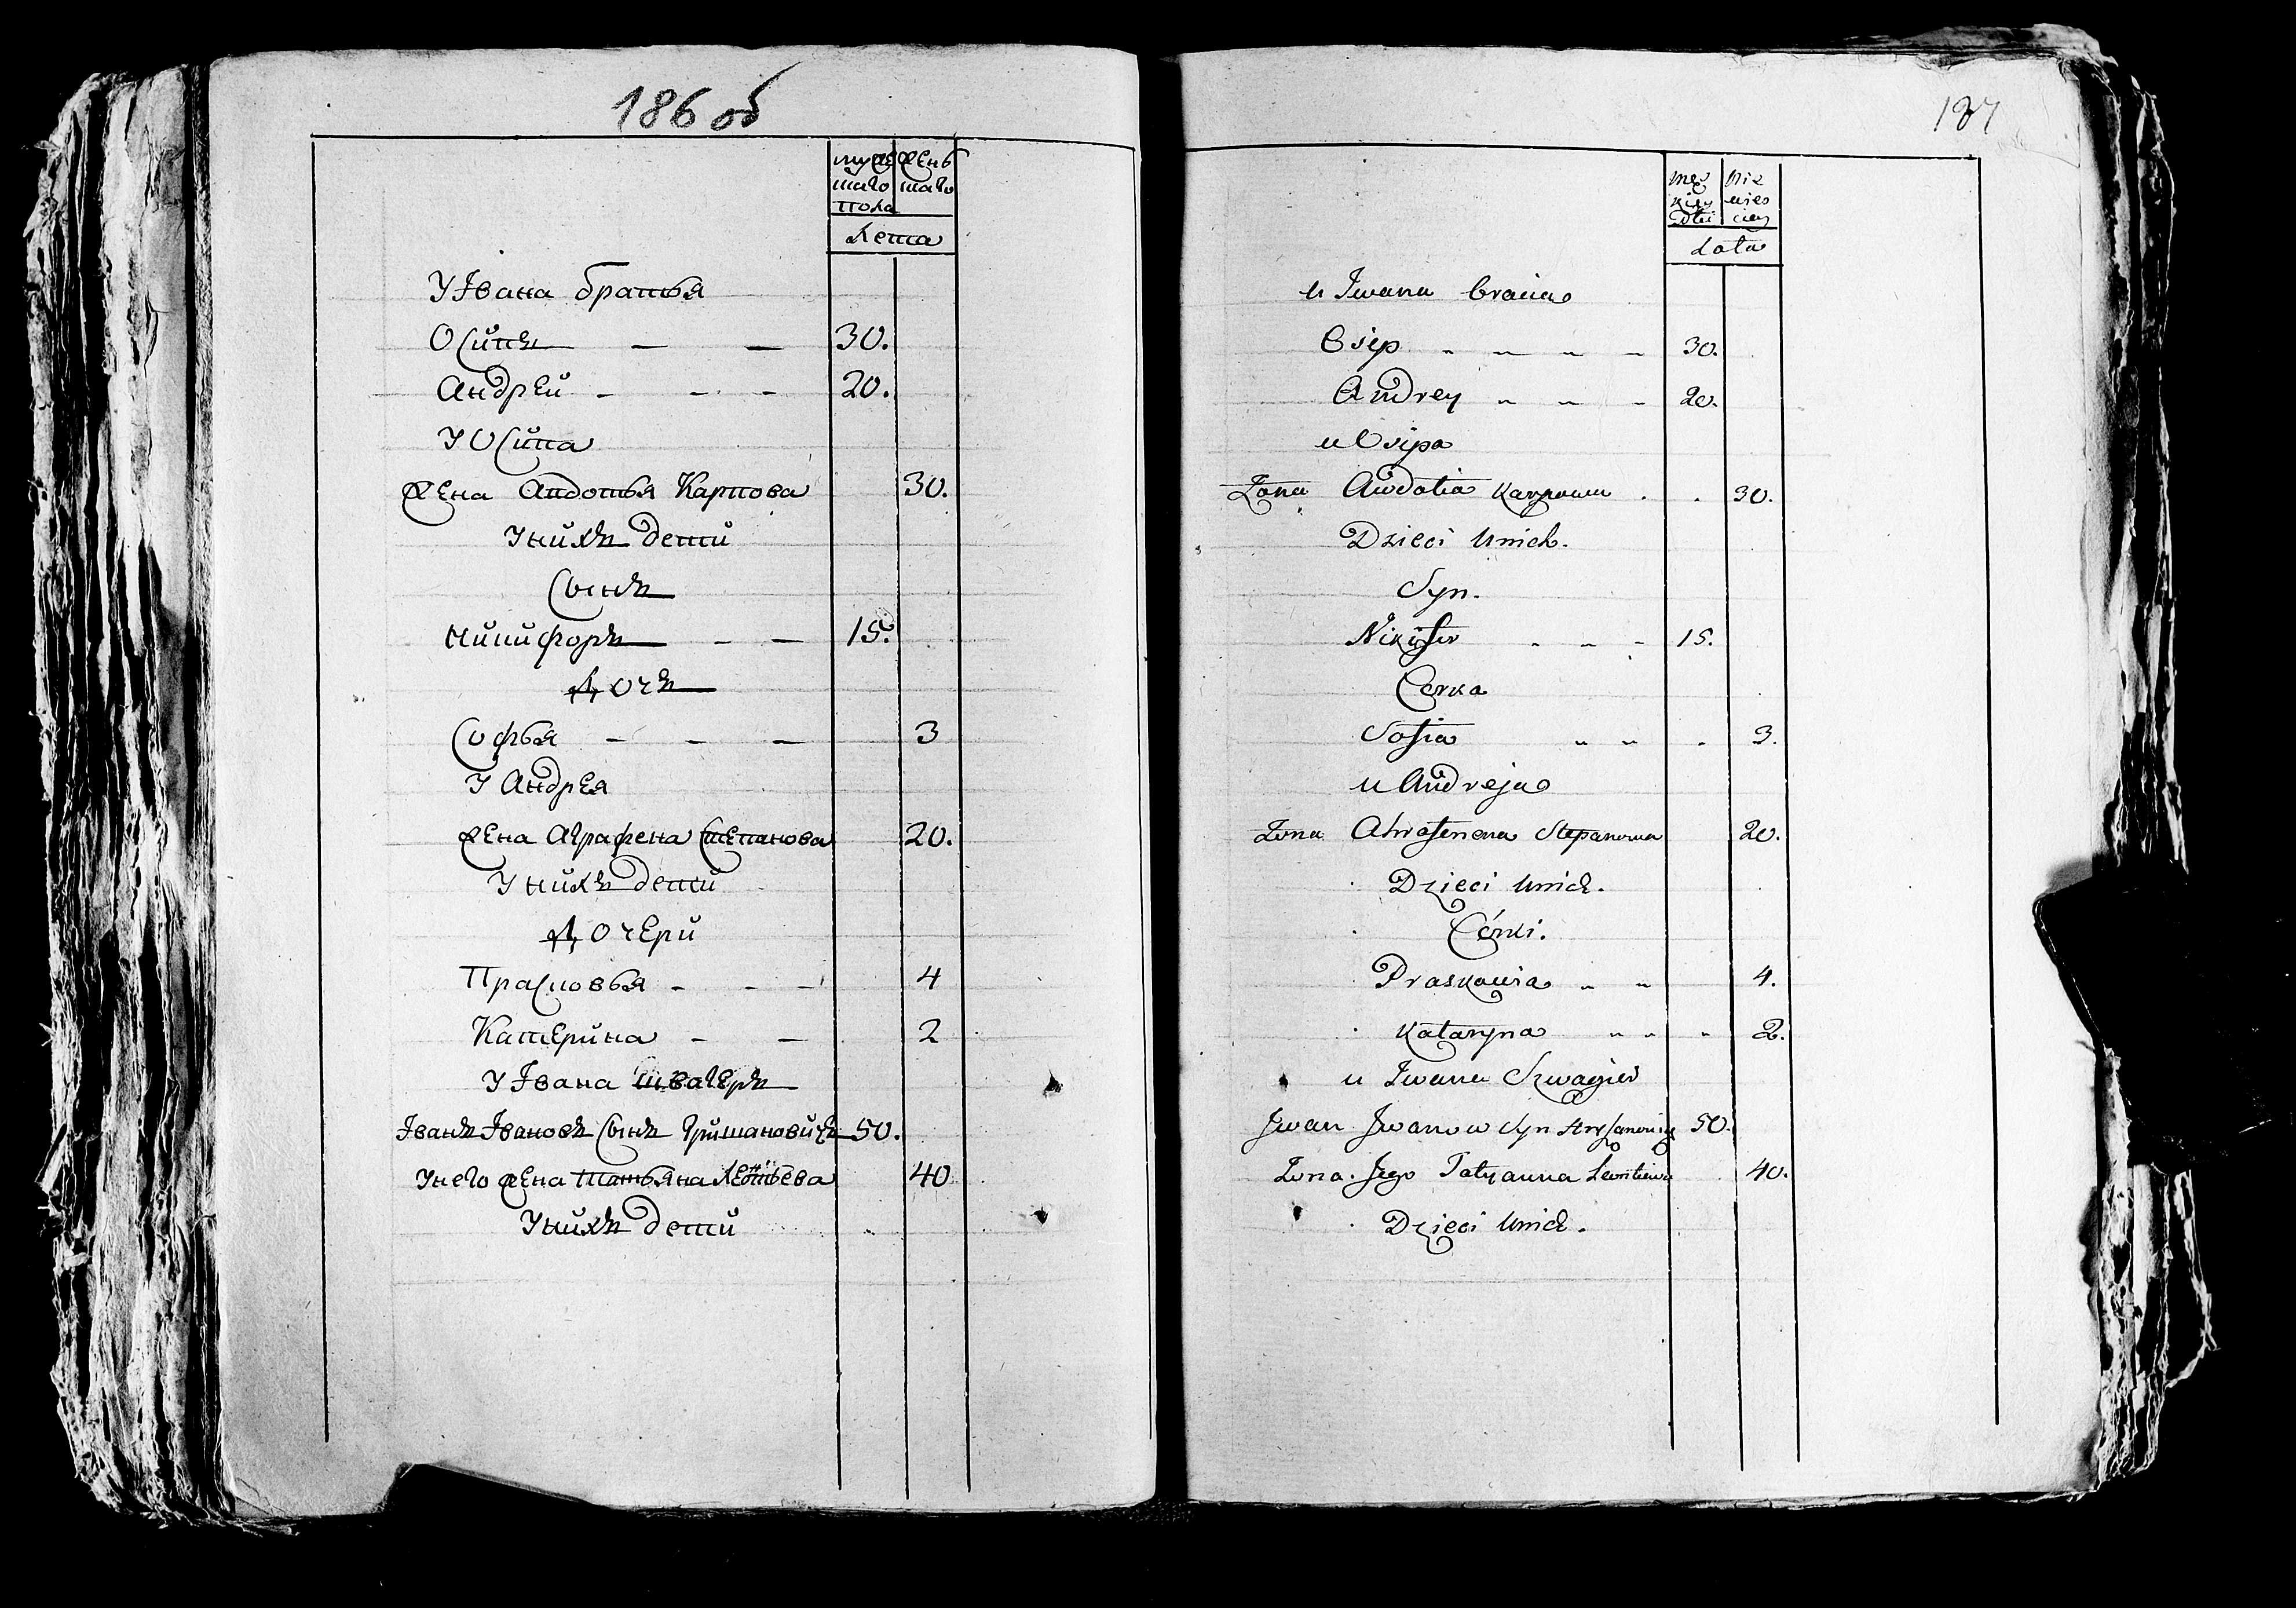 186 об
муже женъ
шаго шаго
пола
лета
У Iвана братья
Осипъ — — 30.
Андрей - - - 20.
У Осипа
жена Авдотья Карпова 30.
У нихъ дети
Сынъ
Никифоръ — — 15.
Дочъ
Софья — — — 3
У Андрея
жена Аграфена Степанова 20.
У нихъ дети
Дочери
Прасковья - - - 4
Катерина - — 2
У Iвана швагеръ
Iванъ Iвановъ Сынъ 50.
У него жена Татьяна Леонтьева 40
У нихъ дети
187
męz
kiey
Płci
Lata
u Iwana bracia
Osip „ „ „ „ 30.
Andrey „ „ „ 20.
u Osipa
Żona Awdotia Karpowa . . 30.
Dzieci Unich.
Syn.
Nikifor „ „ „ 15.
Corka
Sofia „ „ „ 3.
u Andreja
Żona Ahrafenena Stepanowa 20.
Dzieci Unich.
Córki.
Praskowia „ „ 4.
Kataryna „ „ „ 2.
u Iwana Szwagier
Iwan Iwanow Syn 50.
Żona Jego Tatyanna Leontiewa 40.
Dzieci Unich.